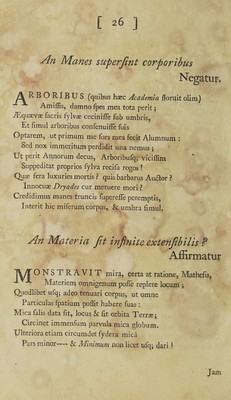 [ 26 ]
An Manes superſint corporibus
Negatur.
ARBORIBUS (quibus hæc Academia floruit olim)
Amiſſis, damno ſpes mea tota perit;
Æquævæ ſacris ſylvæ cecinîſſe ſub umbris,
Et ſimul arboribus conſenuiſſe ſuis
Optarem, ut primum me ſors mea fecit Alumnum:
Sed nox immeritum perdidit una nemus;
Ut perit Annorum decus, Arboribuſq; viciſſim
Suppeditat proprios ſylva reciſa rogos!
Quæ fera luxuries mortis? quis barbarus Auctor?
Innocuæ Dryades cur meruere mori?
Credidimus manes truncis ſupereſſe peremptis,
Interit hic miſerum corpus, & umbra ſimul.
An Materia ſit infinite extenſibilis?
Affirmatur
MONSTRAVIT mira, certa at ratione, Matheſis,
Materiem omnigenum poſſe replere locum;
Quodlibet uſq; adeo tenuari corpus, ut omne
Particulas ſpatium poſſit habere ſuas:
Mica ſalis data ſit, locus & ſit orbita Terræ;
Circinet immenſum parvula mica globum.
Ulteriora etiam circumdet ſydera mica
Pars minor— & Minimum non licet uſq; dari!
Jam